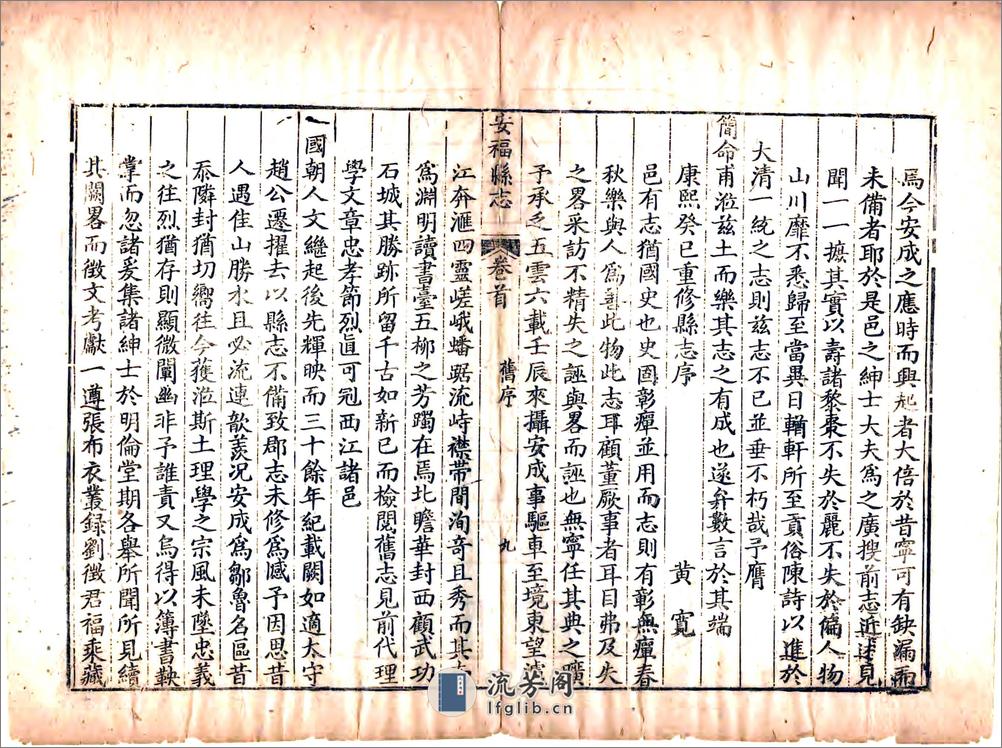 焉今安成之應時而興起者大倍於昔寧可有缺漏而
未備者耶於是邑之紳士大夫爲之廣搜前志近述見
聞一一摭其實以壽諸黎棗不失於麗不失於偏人物
山川靡不悉歸至當異日輶軒所至貢俗陳詩以進於
大清一統之志則兹志不已並垂不朽哉予膺
簡命甫涖兹土而樂其志之有成也遂弁數言於其端
康熙癸巳重修縣志序 黄寬
邑有志猶國史也史固彰癉並用而志則有彰無癉春
秋樂與人爲善此物此志耳顧董厥事者耳目弗及失
之畧采訪不精失之誣與畧而誣也無寧任其典之曠
予承乏五雲六載壬辰來攝安成事驅車至境東望瀘
江奔滙四靈嵯峨蟠踞流峙襟帶間洵竒且秀而其
爲淵明讀書臺五柳之芳躅在焉北瞻華封西顧武功
石城其勝跡所留千古如新已而檢閱舊志見前代理
學文章忠孝節烈眞可冠西江諸邑
國朝人文繼起後先輝映而三十餘年紀載闕如適太守
趙公遷擢去以縣志不備致郡志未修爲憾予因思昔
人遇佳山勝水且必流連歆羨况安成爲鄒魯名區昔
忝隣封猶切嚮往今獲涖斯土理學之宗風未墜忠義
之往烈猶存則顯微闡幽非予誰責又烏得以簿書鞅
掌而忽諸爰集諸紳士於明倫堂期各舉所聞所見續
其闕畧而徵文考獻一遵張布衣叢録劉徵君福乘藏
安福縣志 卷首 舊序 九
流芳阁
lfglib.cn